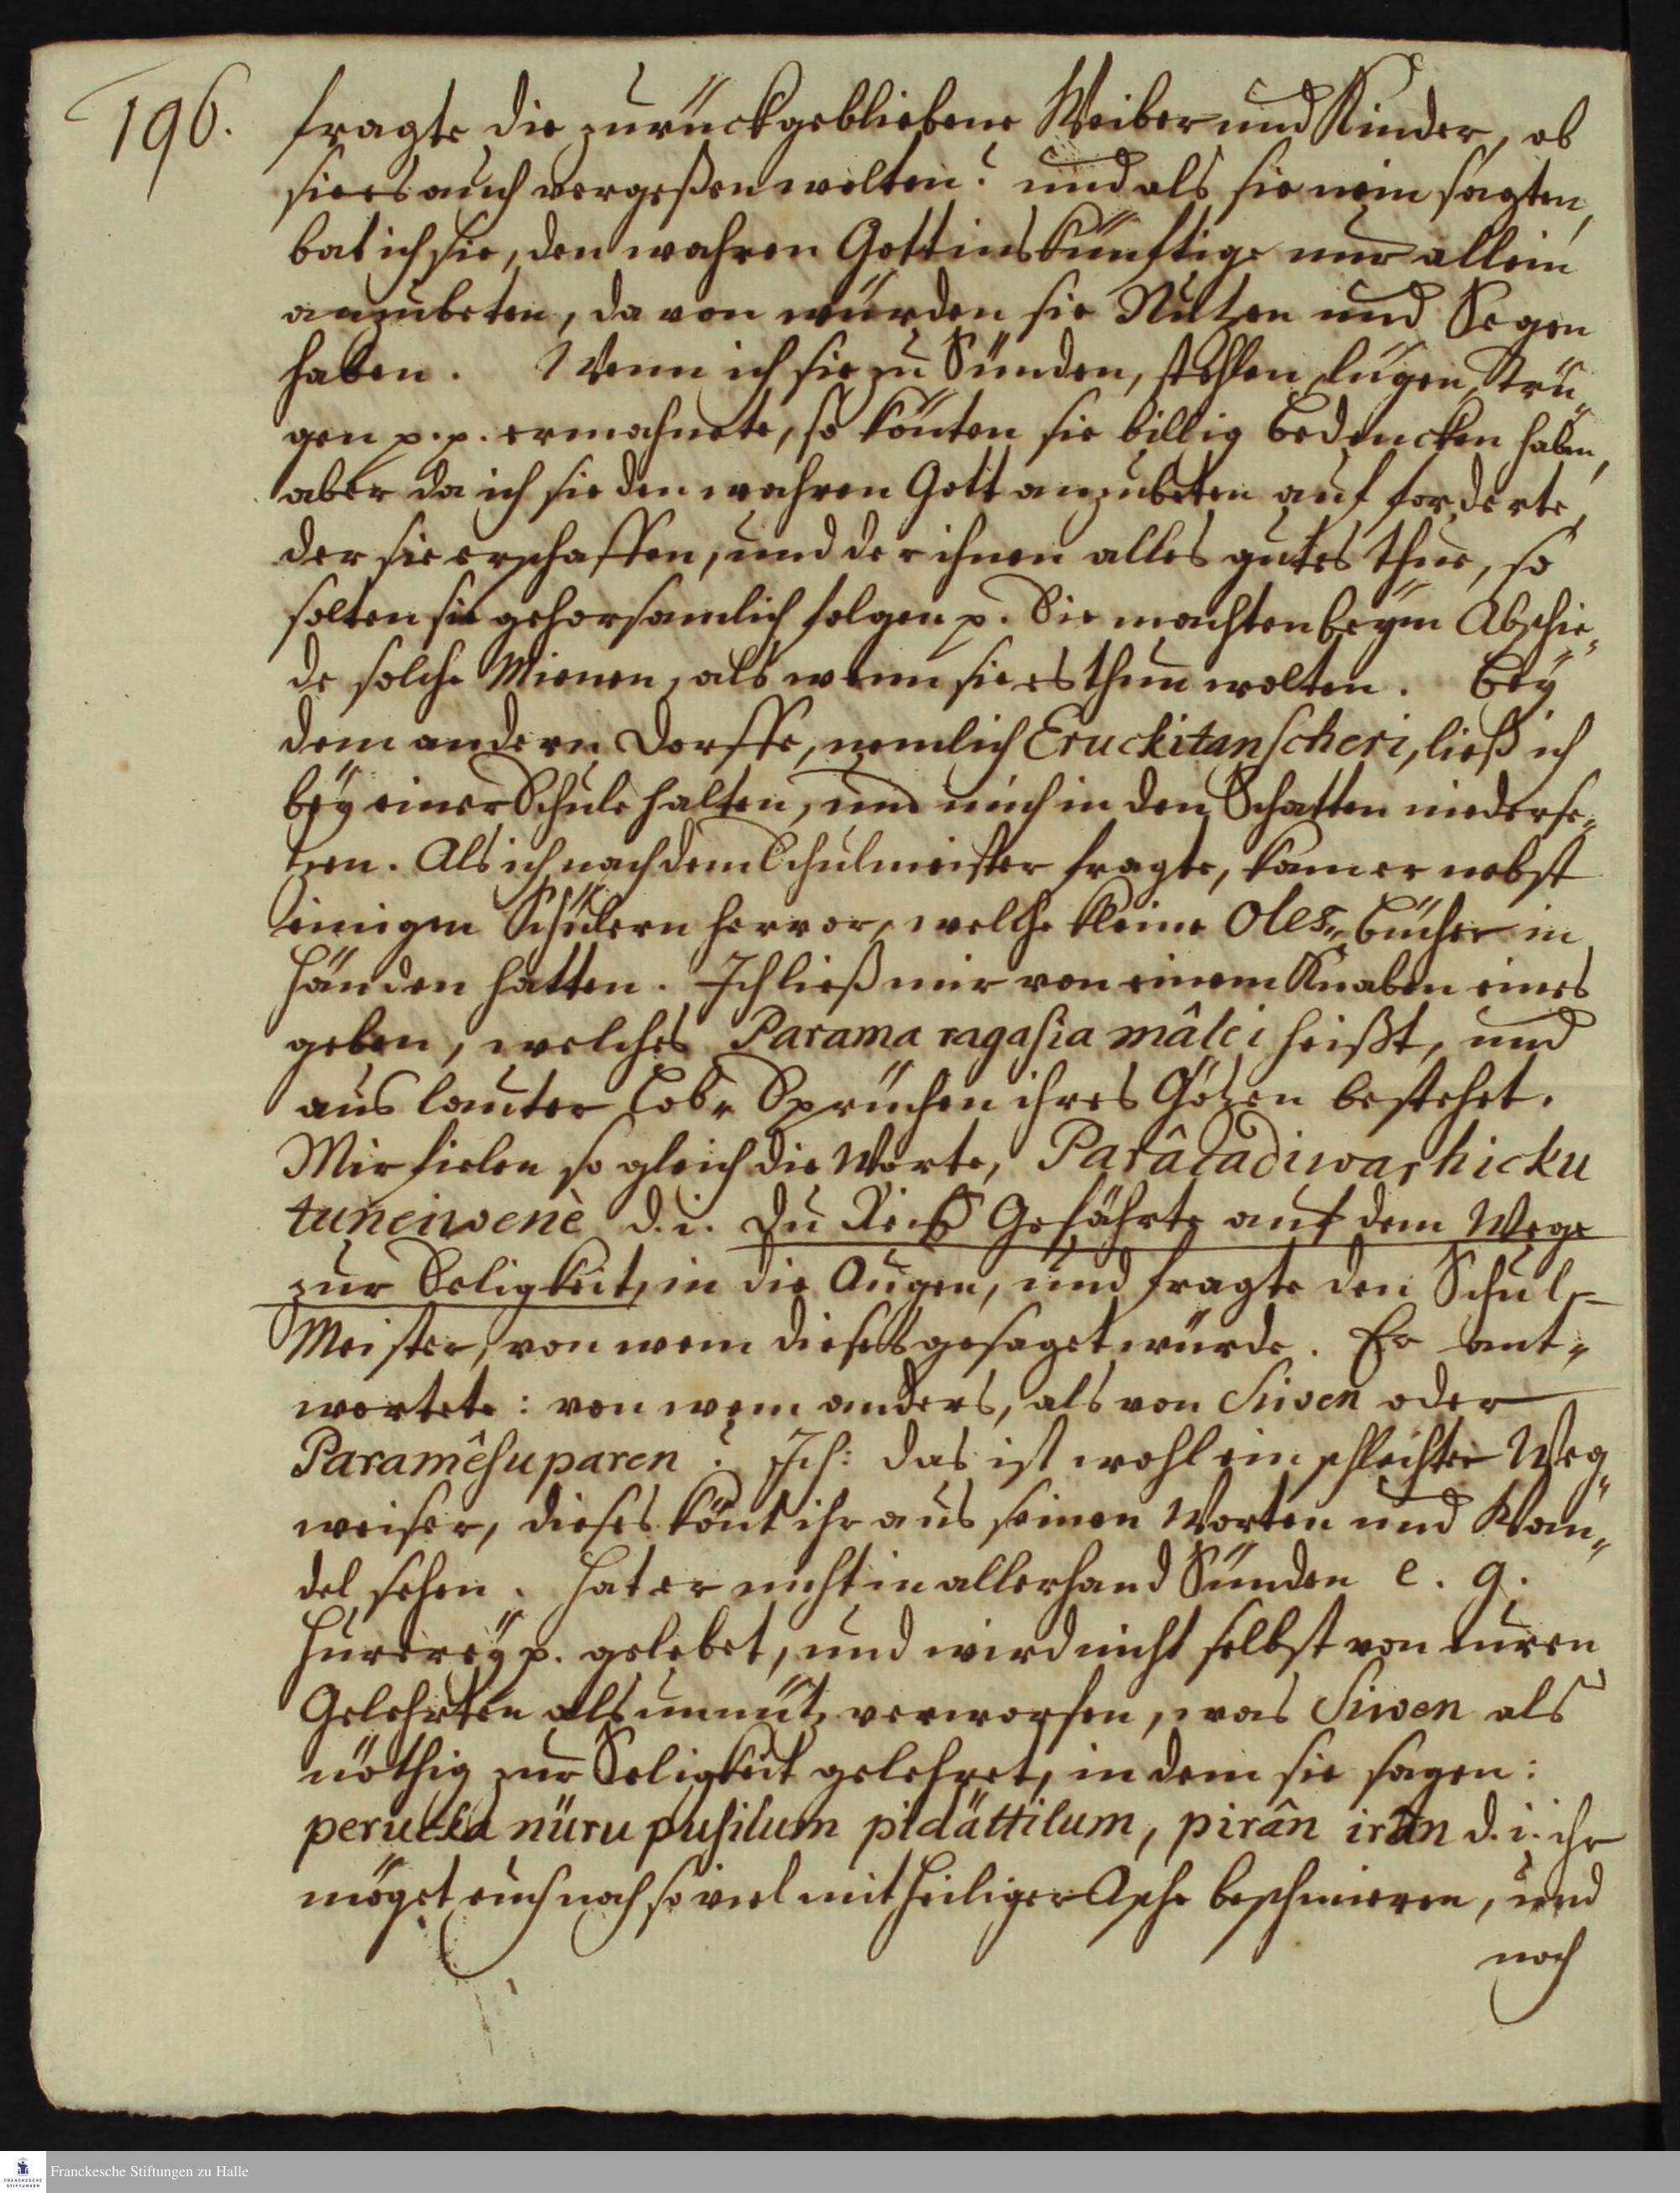 196.
fragte die zurückgebliebene Weiber und Kinder, ob
sie es auch vergeßen wolten? und als sie nein sagten,
bat ich sie, den wahren Gott ins künftige nur allein
anzubeten, davon würden sie Nutzen und Segen
haben. Wenn ich sie zu Sünden, stehlen, lügen, trü„
gen p. p. ermahnete, so könten sie billig bedencken haben,
aber da ich sie den wahren Gott anzubeten auf forderte,
der sie erschaffen, und der ihnen alles gutes thue, so
solten sie gehorsamlich folgen p. Sie machten beym Abschie„
de solche Mienen, als wenn sie es thun wolten. Bey
dem andern Dorffe, nemlich Eruckitanscheri, ließ ich
bey einer Schule halten, und mich in den Schatten niederse„
tzen. Als ich nach dem Schulmeister fragte, kam er nebst
einigen Schülern hervor, welche kleine Oles„Bücher in
Händen hatten. Ich ließ mir von einem Knaben eines
geben, welches Parama ragasia mâlei heißt, und
aus lauter Lob„ Sprüchen ihres Götzen bestehet.
Mir fielen so gleich die Worte, Parâcadiwashicku
tuneiwenè d. i. Du Reiß Gefährte auf dem Wege
zur Seligkeit, in die Augen, und fragte den Schul-
Meister, von wem dieses gesaget würde. Er ant„
wortete: von wem anders, als von Siwen oder
Paramêsuparen? Ich: das ist wohl ein schlechter Weg„
weiser, dieses könt ihr aus seinen Worten und Wan„
del sehen. Hat er nicht in allerhand Sünden e. g.
Hurerey p. gelebet, und wird nicht selbst von euren
Gelehrten als unnütz verworfen, was Siwen als
nöthig zur Seligkeit gelehret, in dem sie sagen:
perucka nüru pusilum pidättilum, pirân irân d. i. ihr
möget euch noch so viel mit heiliger Asche beschmieren, und
noch
Franckesche Stiftungen zu Halle